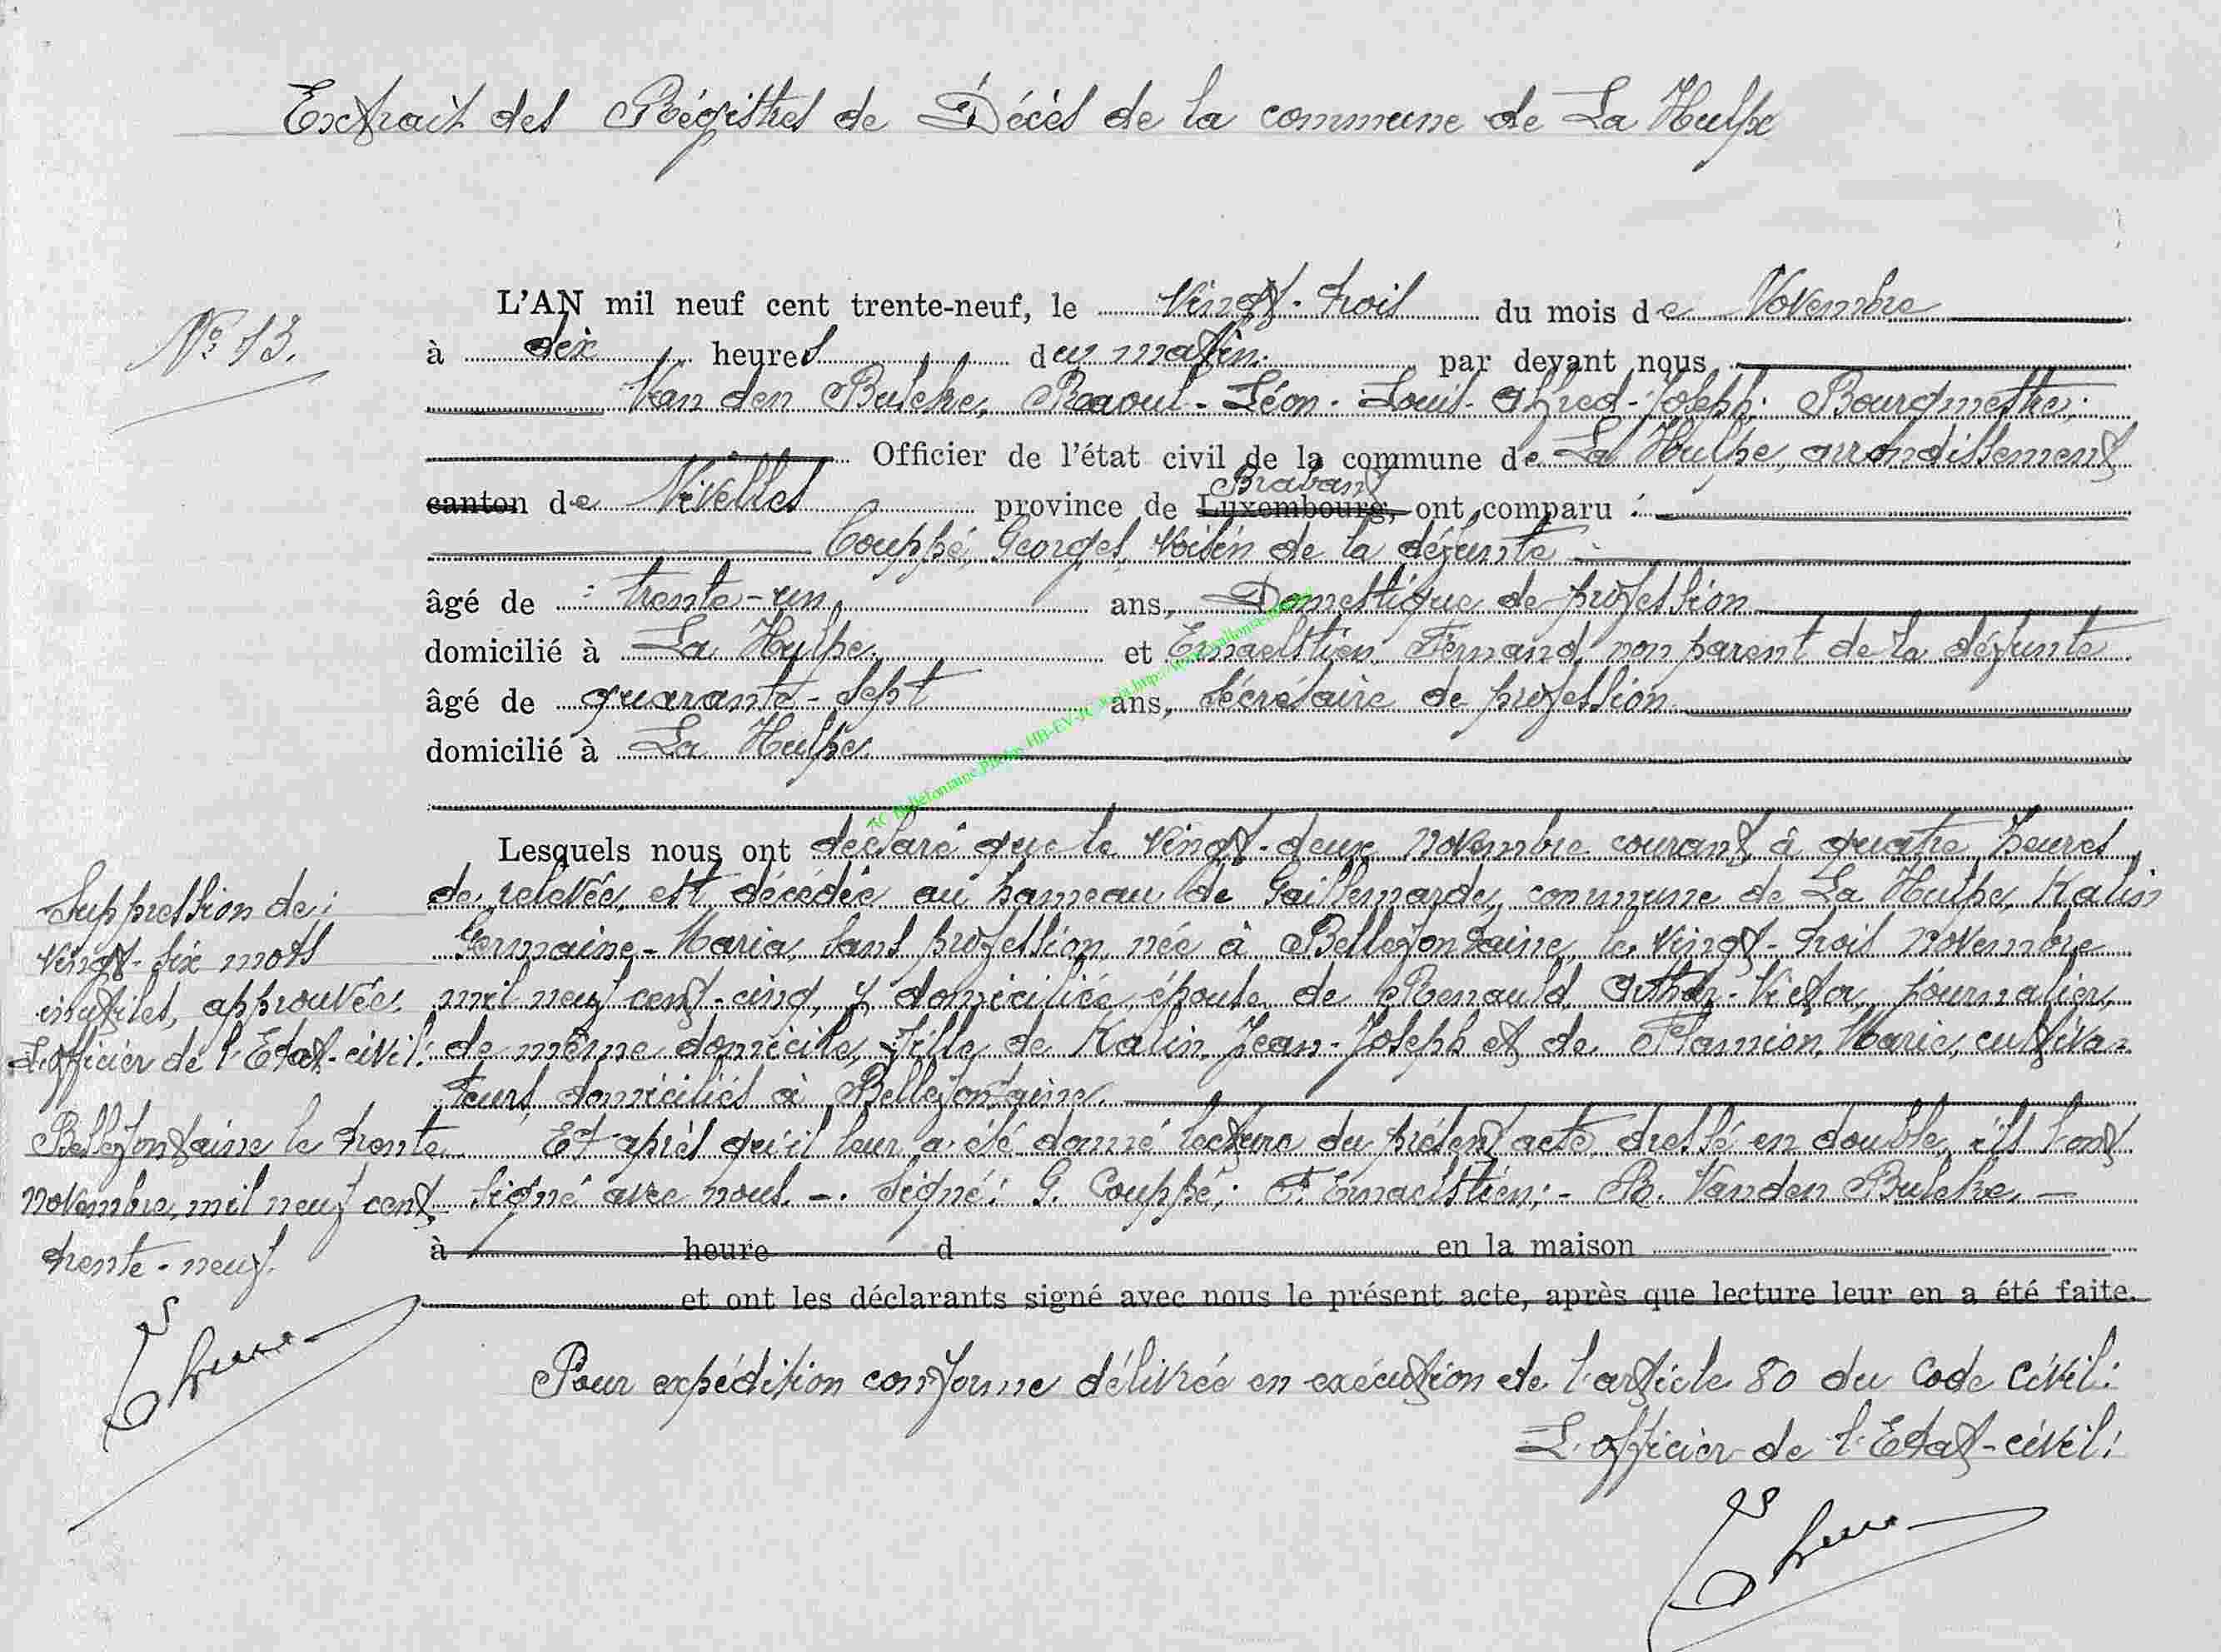 Extrait des Régistres de Décès de la commune de La Hulpe
N° 13.
L'AN mil neuf cent trente-neuf, le vingt-trois du mois de Novembre
à dix heures du matin. par devant nous
Van den Bulcke, Raoul-Léon-Louis-Alfred-Joseph. Bourgmestre.
Officier de l'état civil de la commune de La Hulpe, arrondissement
Brabant
canton de Nivelles province de Luxembourg, ont comparu :
Couppé, Georges, voisin de la défunte
âgé de trente-un ans, Domestique de profession
domicilié à La Hulpe. et Ernaelstien, Fernand, non parent de la défunte
âgé de quarante-sept ans, sécrétaire de profession
domicilié à La Hulpe.
Lesquels nous ont déclaré que le vingt-deux novembre courant, à quatre heures
de relevée, est décédée au hameau de Gaillemarde, commune de La Hulpe, Kalin
Germaine-Maria, sans profession, née à Bellefontaine, le vingt-trois novembre
mil neuf cent-cinq, y domiciliée, épouse de Renauld, Arthur-Victor, journalier,
de même domicile, fille de Kalin, Jean-Joseph et de Flamion, Marie, cultiva-
teurs domiciliés à Bellefontaine.
Et après qu'il leur a été donné lecture du présent acte, dressé en double, ils l'ont
signé avec nous. -. Signé: G. Couppé; F. Ernaelstien; - R. Vanden Bulcke. -
à heure d en la maison
et ont les déclarants signé avec nous le présent acte, après que lecture leur en a été faite.
Suppression de:
vingt-six mots
inutiles, approuvée.
L'officier de l'Etat-civil:
Bellefontaine le trente
novembre, mil neuf cent
trente-neuf.
Pour expédition conforme délivrée en exécution de l'article 80 du Code Civil:
L'officier de l'Etat-civil: